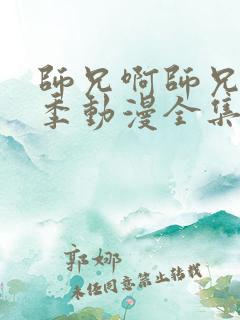 師兄啊師兄
季動漫全集
郭娜
未經同意禁止轉載